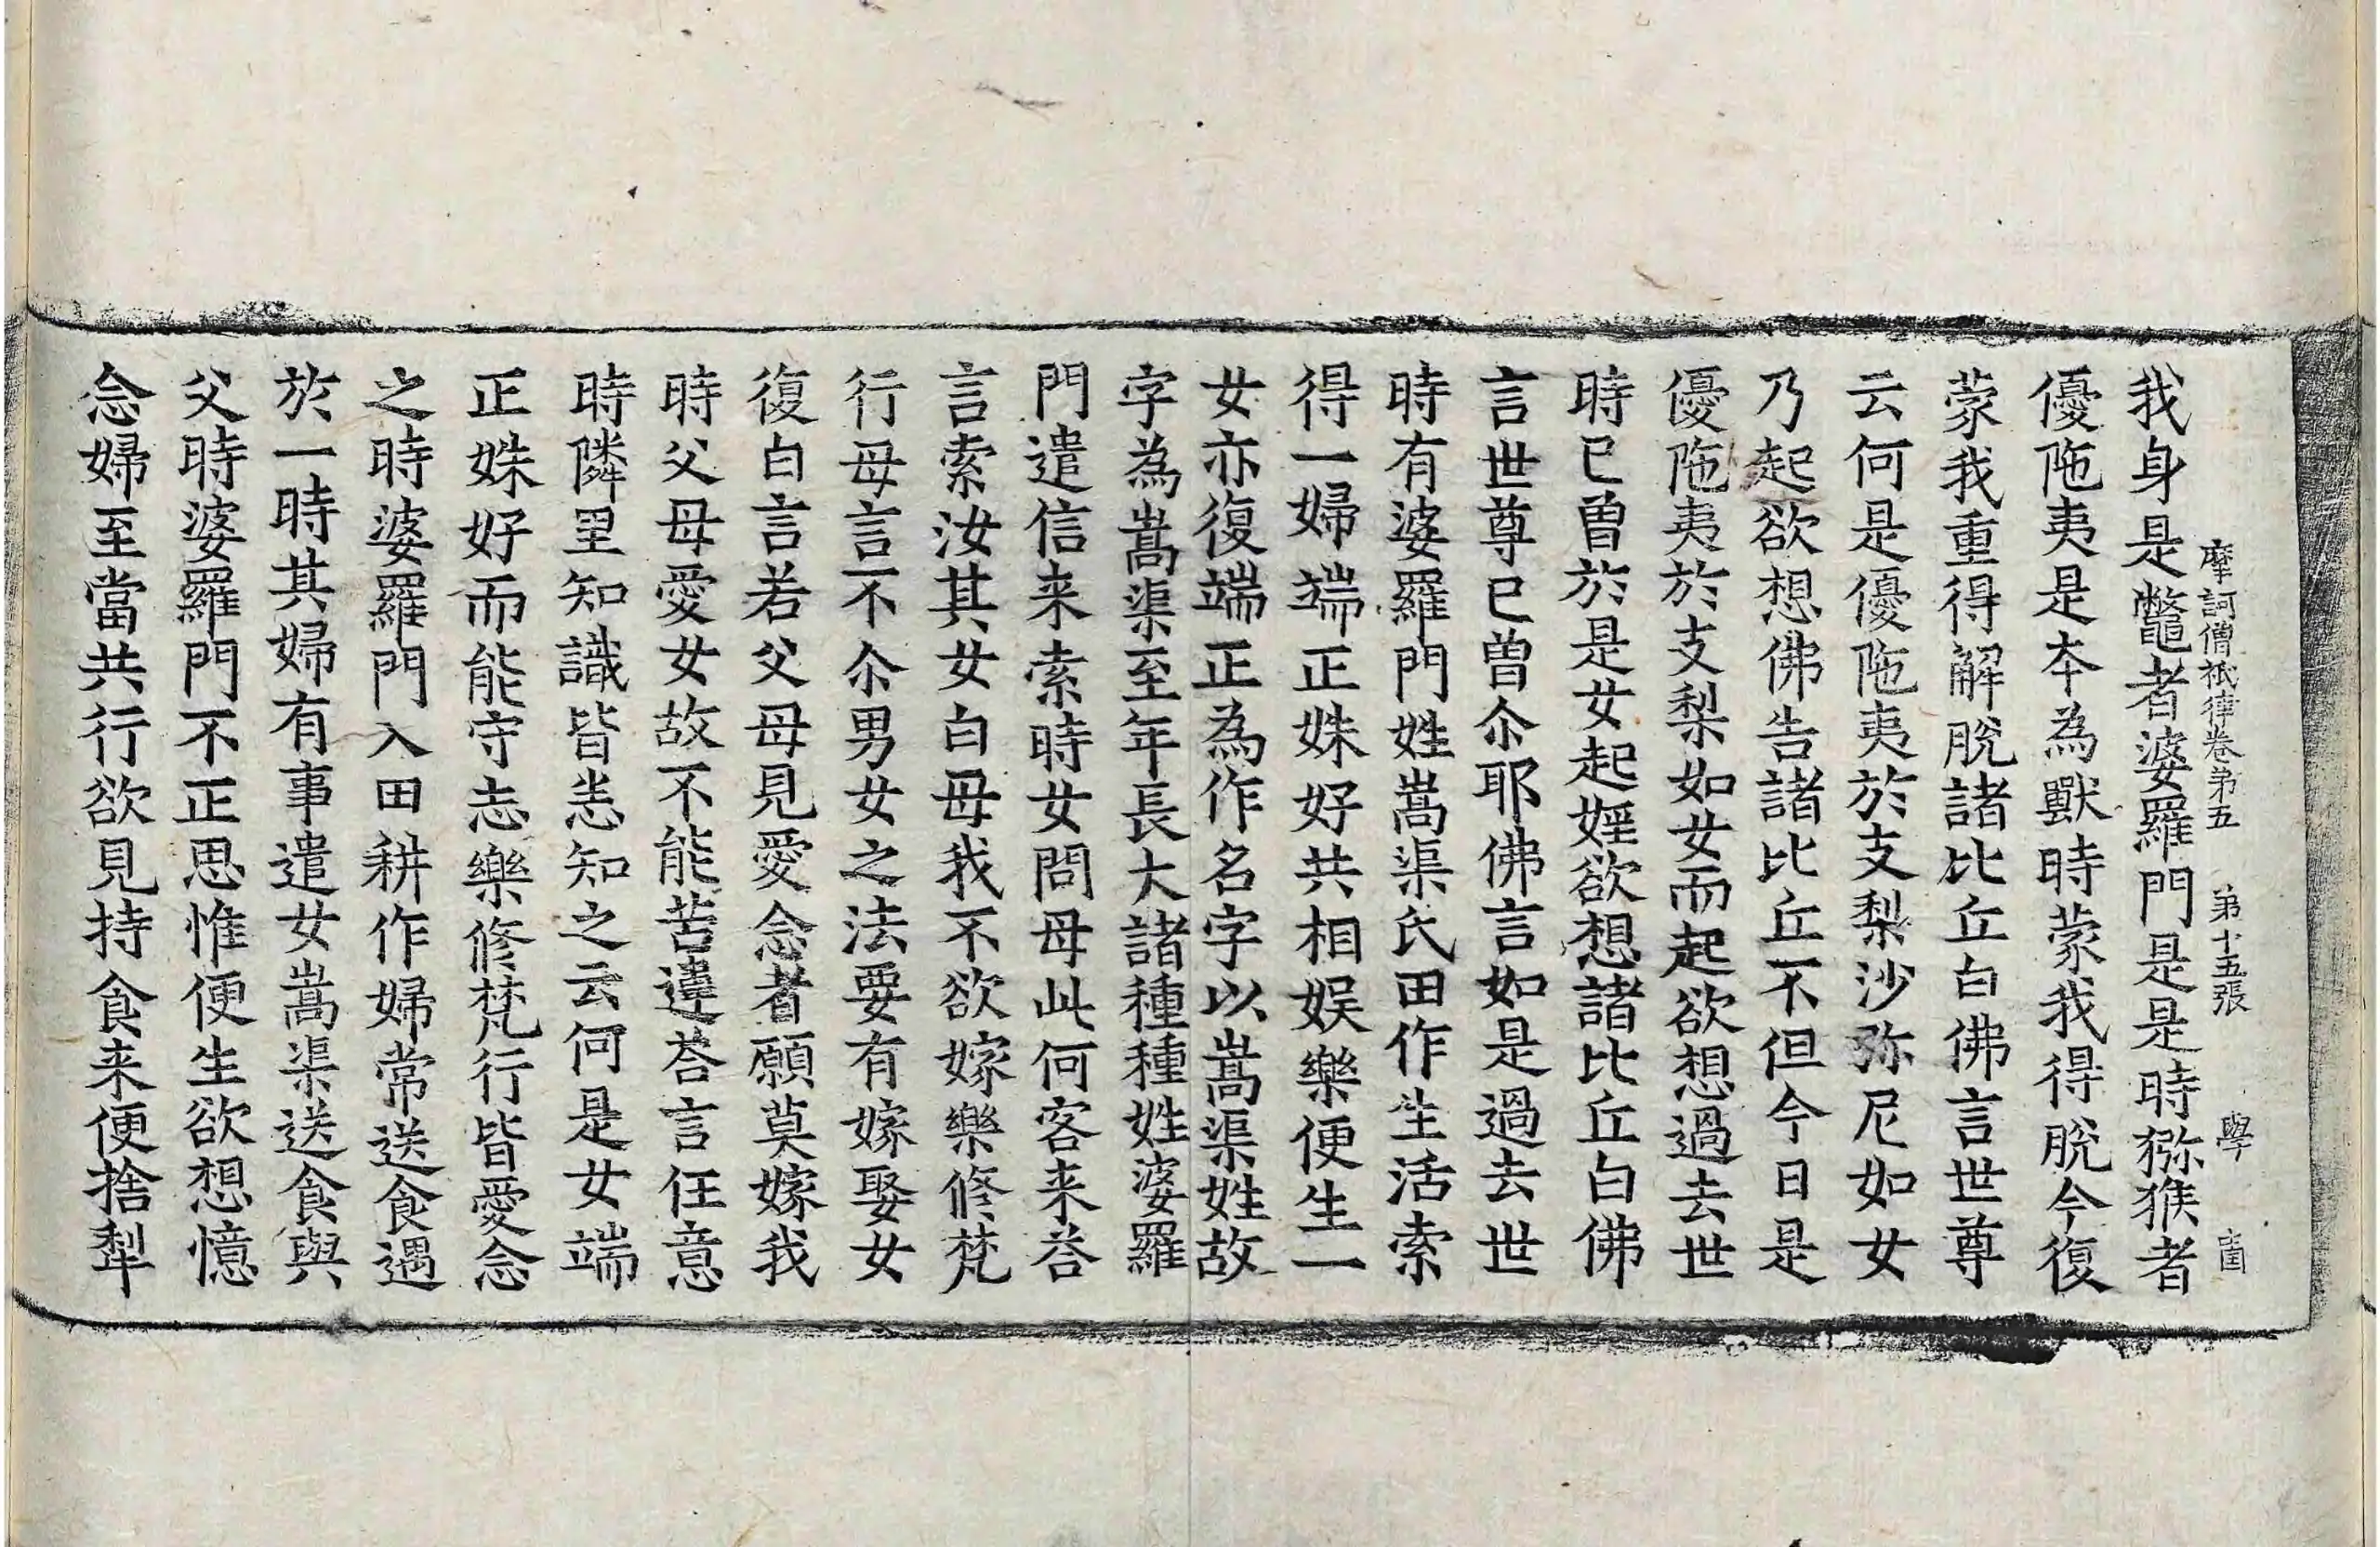 摩訶僧祇律卷第五 第十五張 學
我身是鼈者婆羅門是是時猕猴者
優陁夷是夲為獸時蒙我得脫今復
蒙我重得解脫諸比丘白佛言世尊
云何是優陁夷於支梨沙弥尼如女
乃起欲想佛告諸比丘不但今日是
優陁夷於支梨如女而起欲想過去世
時已曾於是女起婬欲想諸比丘白佛
言世尊已曾尒耶佛言如是過去世
時有婆羅門姓嵩渠氏田作生活索
得一婦端正姝好共相娱樂便生一
女亦復端正為作名字以嵩渠姓故
字為嵩渠至年長大諸種種姓婆羅
門遣信来索時女問母此何客来荅
言索汝其女白母我不欲嫁樂修梵
行母言不尒男女之法要有嫁娶女
復白言若父母見愛念者願莫嫁我
時父母愛女故不能苦違荅言任意
時隣里知識皆悉知之云何是女端
正姝好而能守志樂修梵行皆愛念
之時婆羅門入田耕作婦常送食遇
於一時其婦有事遣女嵩渠送食與
父時婆羅門不正思惟便生欲想憶
念婦至當共行欲見持食来便捨犁